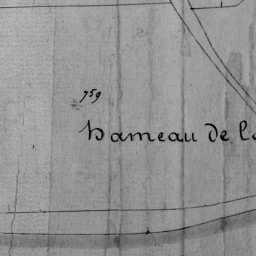 759
hameau de l